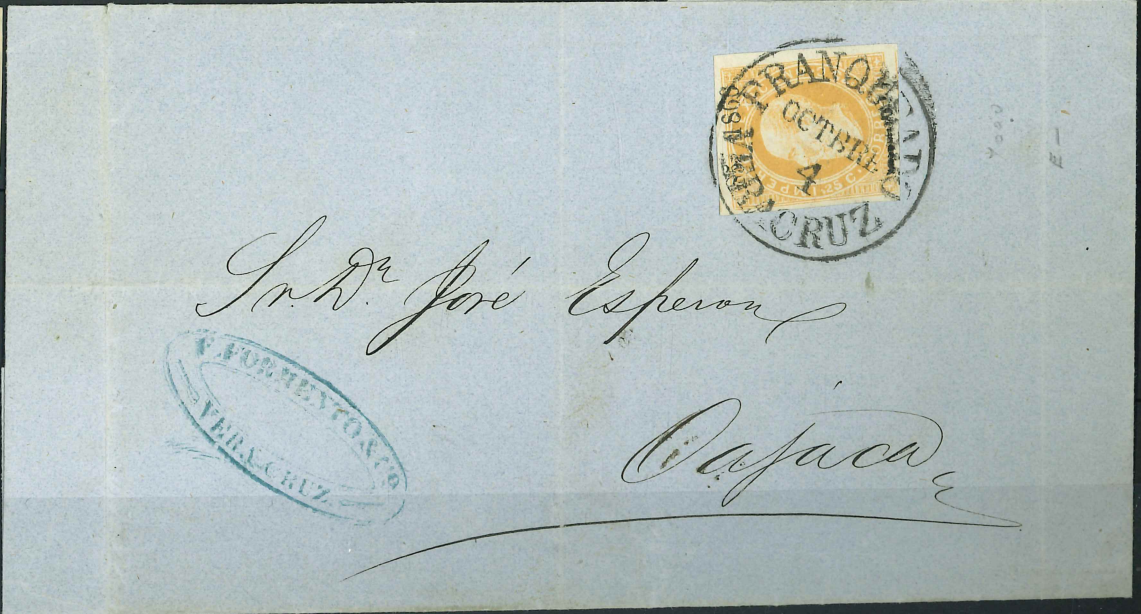 FRANQUEADO
OCTBRE
4
VERACRUZ
25 C.
Sr. Dn. José Esperon
F. FORMENTO & CO
VERA CRUZ
Oajaca